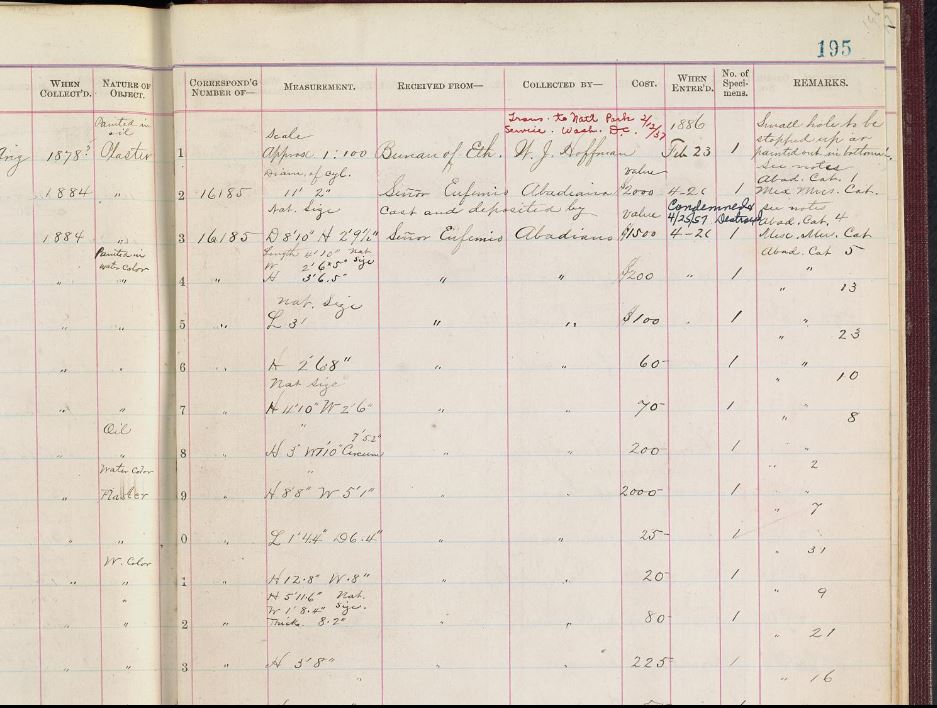 195
WHEN COLLECT'D. NATURE OF OBJECT. CORRESPOND'G NUMBER OF— MEASUREMENT. RECEIVED FROM— COLLECTED BY— COST. WHEN ENTER'D. No. of Speci-mens. REMARKS.
Painted in oil
Trans. to Natl Park 2/12/37
Service. Wash. D.C.
1886
Small hole to be
stopped up or
painted out in bottom.
Scale
1878? Plaster 1 Approx 1:100 Bureau of Eth. W. J. Hoffman Feb 23 1
See notes
Diam. of Cyl. value Abad. Cat. 1
1884 " 2 16185 11' 2" Señor Eufemio Abadiano $2000 4-26 1 Mex Mus. Cat.
Nat. Size cast and deposited by value Condemned &
4/25/57 Destroyed
see notes
Abad. Cat. 4
1884 " 3 16185 D 8'10" H 2'9½" Señor Eufemio Abadiano $1500 4-26 1 Mex. Mus. Cat
Painted in
water color
Length 4'10" Nat
W 2'6"5" Size
Abad. Cat 5
" " 4 " H 3'6.5" " " $200 " 1 "
" 13
Nat. Size
" " 5 " L 3' " " $100 " 1 "
" 23
" " 6 " H 2'6.8" 60- 1 "
Nat Size " 10
" " 7 " H 4'10" W 2'6" " " 70- 1 "
Oil " " 8
7'5.2"
" " 8 " H 3' W 1'10" Circum " " 200 1 "
Water Color " " 2
" Plaster 9 " H 8'8" W 5'1" " " 2000- 1 "
" 7
" " 0 " L 1'4.4" D 6.4" " " 25- 1 "
W. Color " 31
" " 1 " H 12.8" W .8" " " 20- 1
" H 5'11.6" Nat. " 9
W 1'8.4" Size.
" 2 " Thick. 8.2" " " 80- 1
" 21
" " 3 " H 3'8" " " 225- 1
" " 16